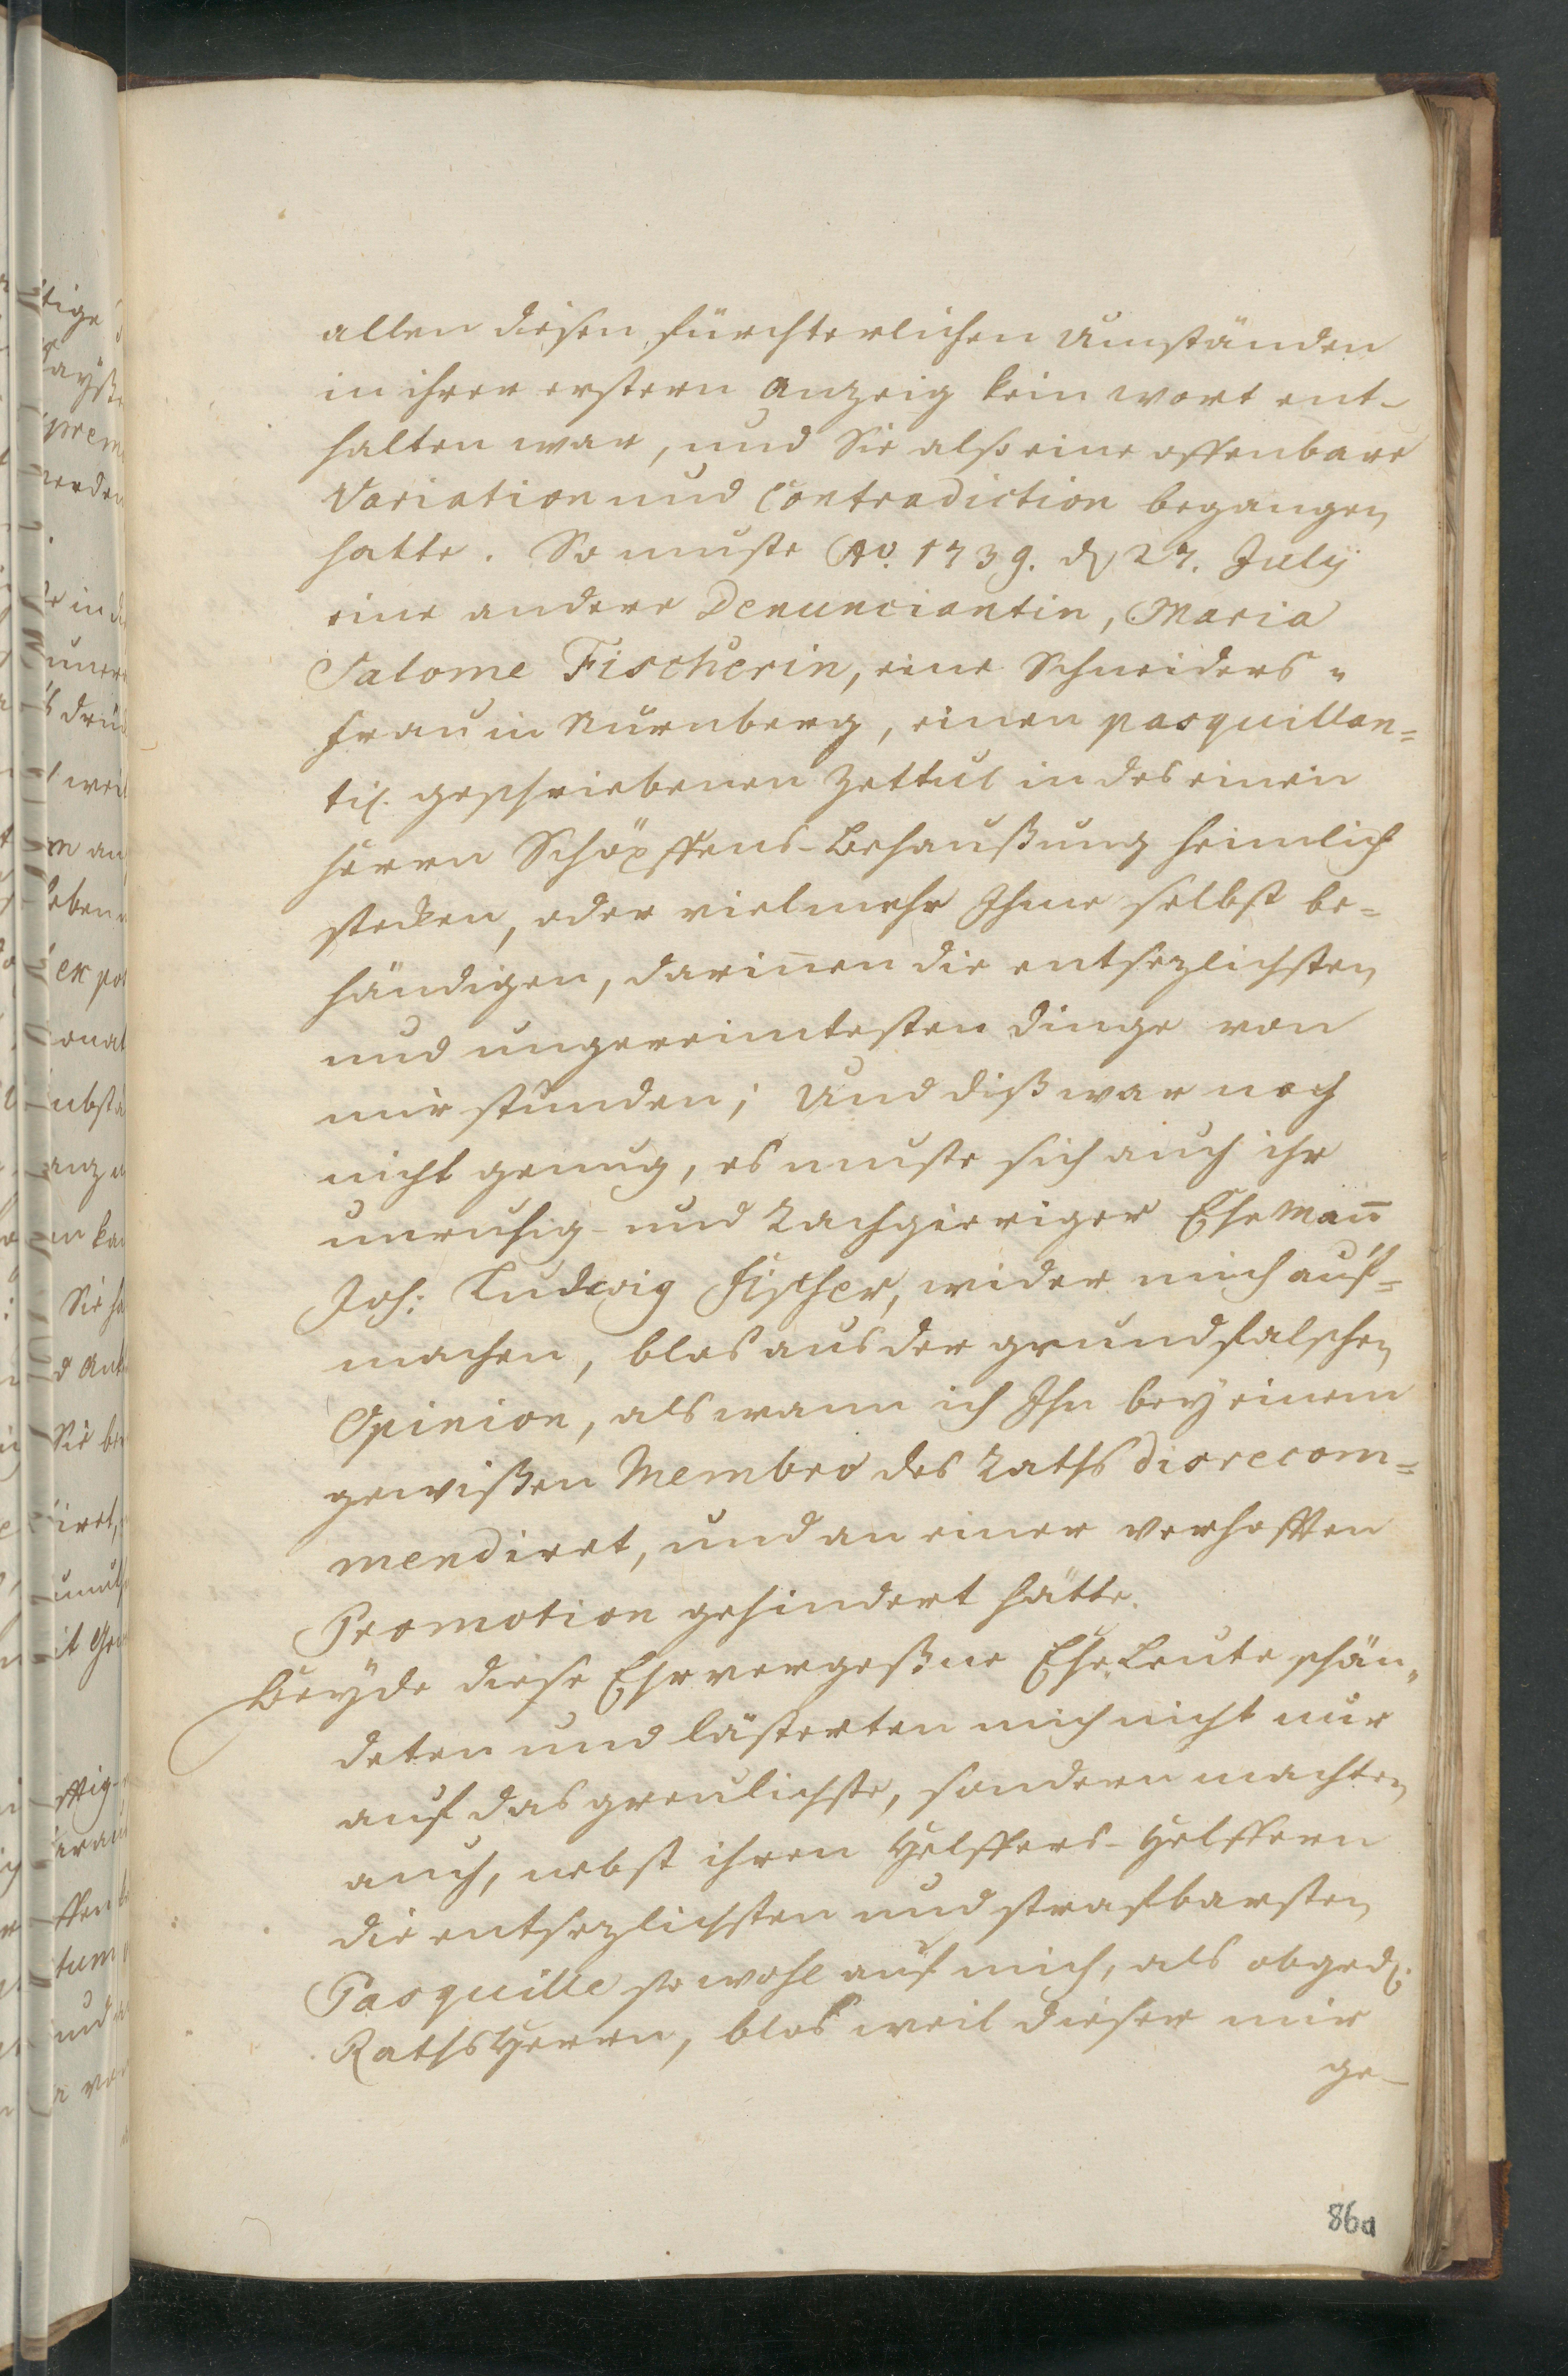 allen diesen fürchterlichen Umständen
in ihrer erstern Anzeig kein wort ent-
halten war, und Sie also eine offenbare
Variation und Contradiction begangen
hatte. So muste Ao. 1739. d. 27. July
eine andere Denunciantin, Maria
Salome Fischerin, eine Schneiders=
frau in Nürnberg, einen pasquillan=
tisch. geschriebenen Zettul in des einen
Herrn Schöpffens-Behaußung heimlich
stecken, oder vielmehr Ihme selbst be=
händigen, darinnen die entsezlichsten
und ungereimtesten dinge von
mir stunden; Und diß war noch
nicht genug, es muste sich auch ihr
unruhig- und Rachgieriger EheMañ
Joh: Ludwig Fischer, wider mich auf=
machen, blos aus der grundfalschen
Opinion, als wann ich Ihn bey einem
gewißen Membro des Raths disrecom=
mendiret, und an einer verhofften
Promotion gehindert hätte.
Beyde diese Ehrvergeßne EheLeute schän=
deten und lästerten mich nicht nur
auf das greulichste, sondern machten
auch, nebst ihren Helffers-Helffern
die entsezlichsten und strafbarsten
Pasquille so wohl auf mich, als obged.
RathsHerrn, blos weil dieser mir
ge-
86a